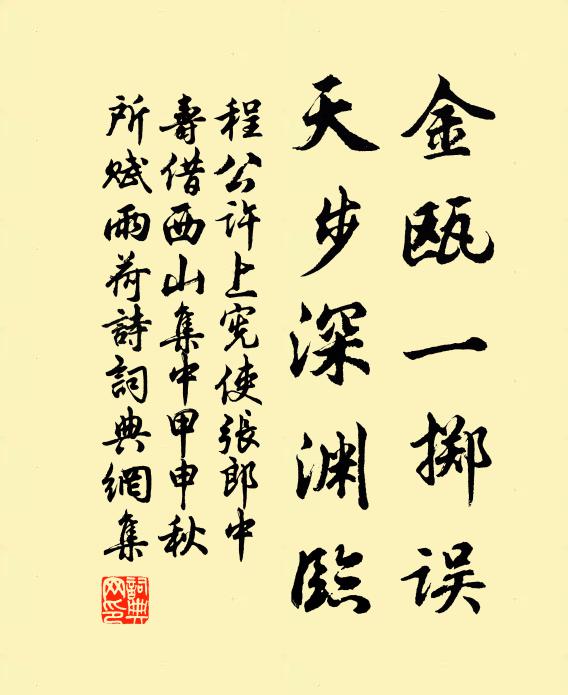 金瓯一掷误
天步深渊臨
程公许上宪使張郎中
壽借西山集中甲申秋
所赋雨荷詩詞典網集
詞典網印